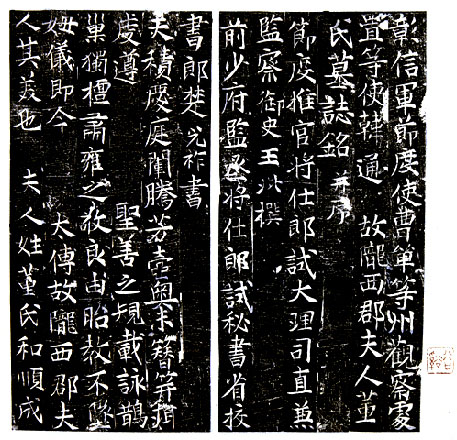 彰信軍節度使曹單等州觀察處
置等使韓通 故隴西郡夫人董
氏墓誌銘 并序
節度推官將仕郎試大理司直兼
監察御史王玭撰
前少府監丞將仕郎試秘書省校
書郎楚光祚書
夫積慶庭闈騰芳壼奧求簪笄
處遵 聖善之規載詠鵲
巢獨擅肅雍之教良由昭教不墜
姆儀即今 太傅故隴西郡夫
人其美也 夫人姓董氏和順成